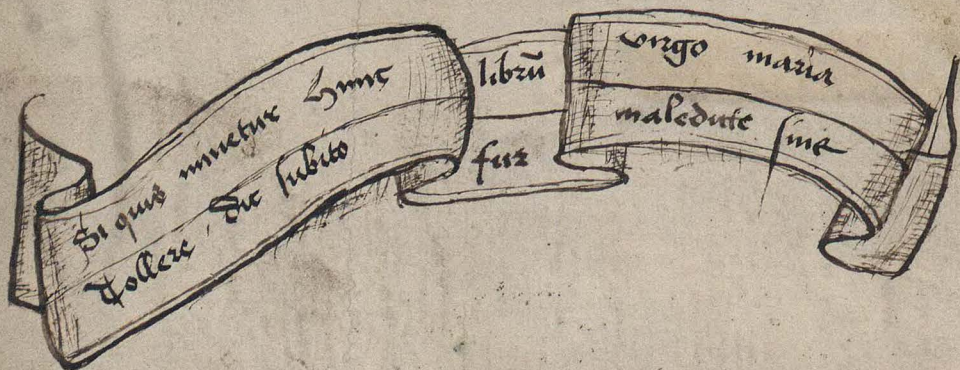 Si quis ninetur Hunc librū virgo maria
Tollere, Dic subito fur maledicte